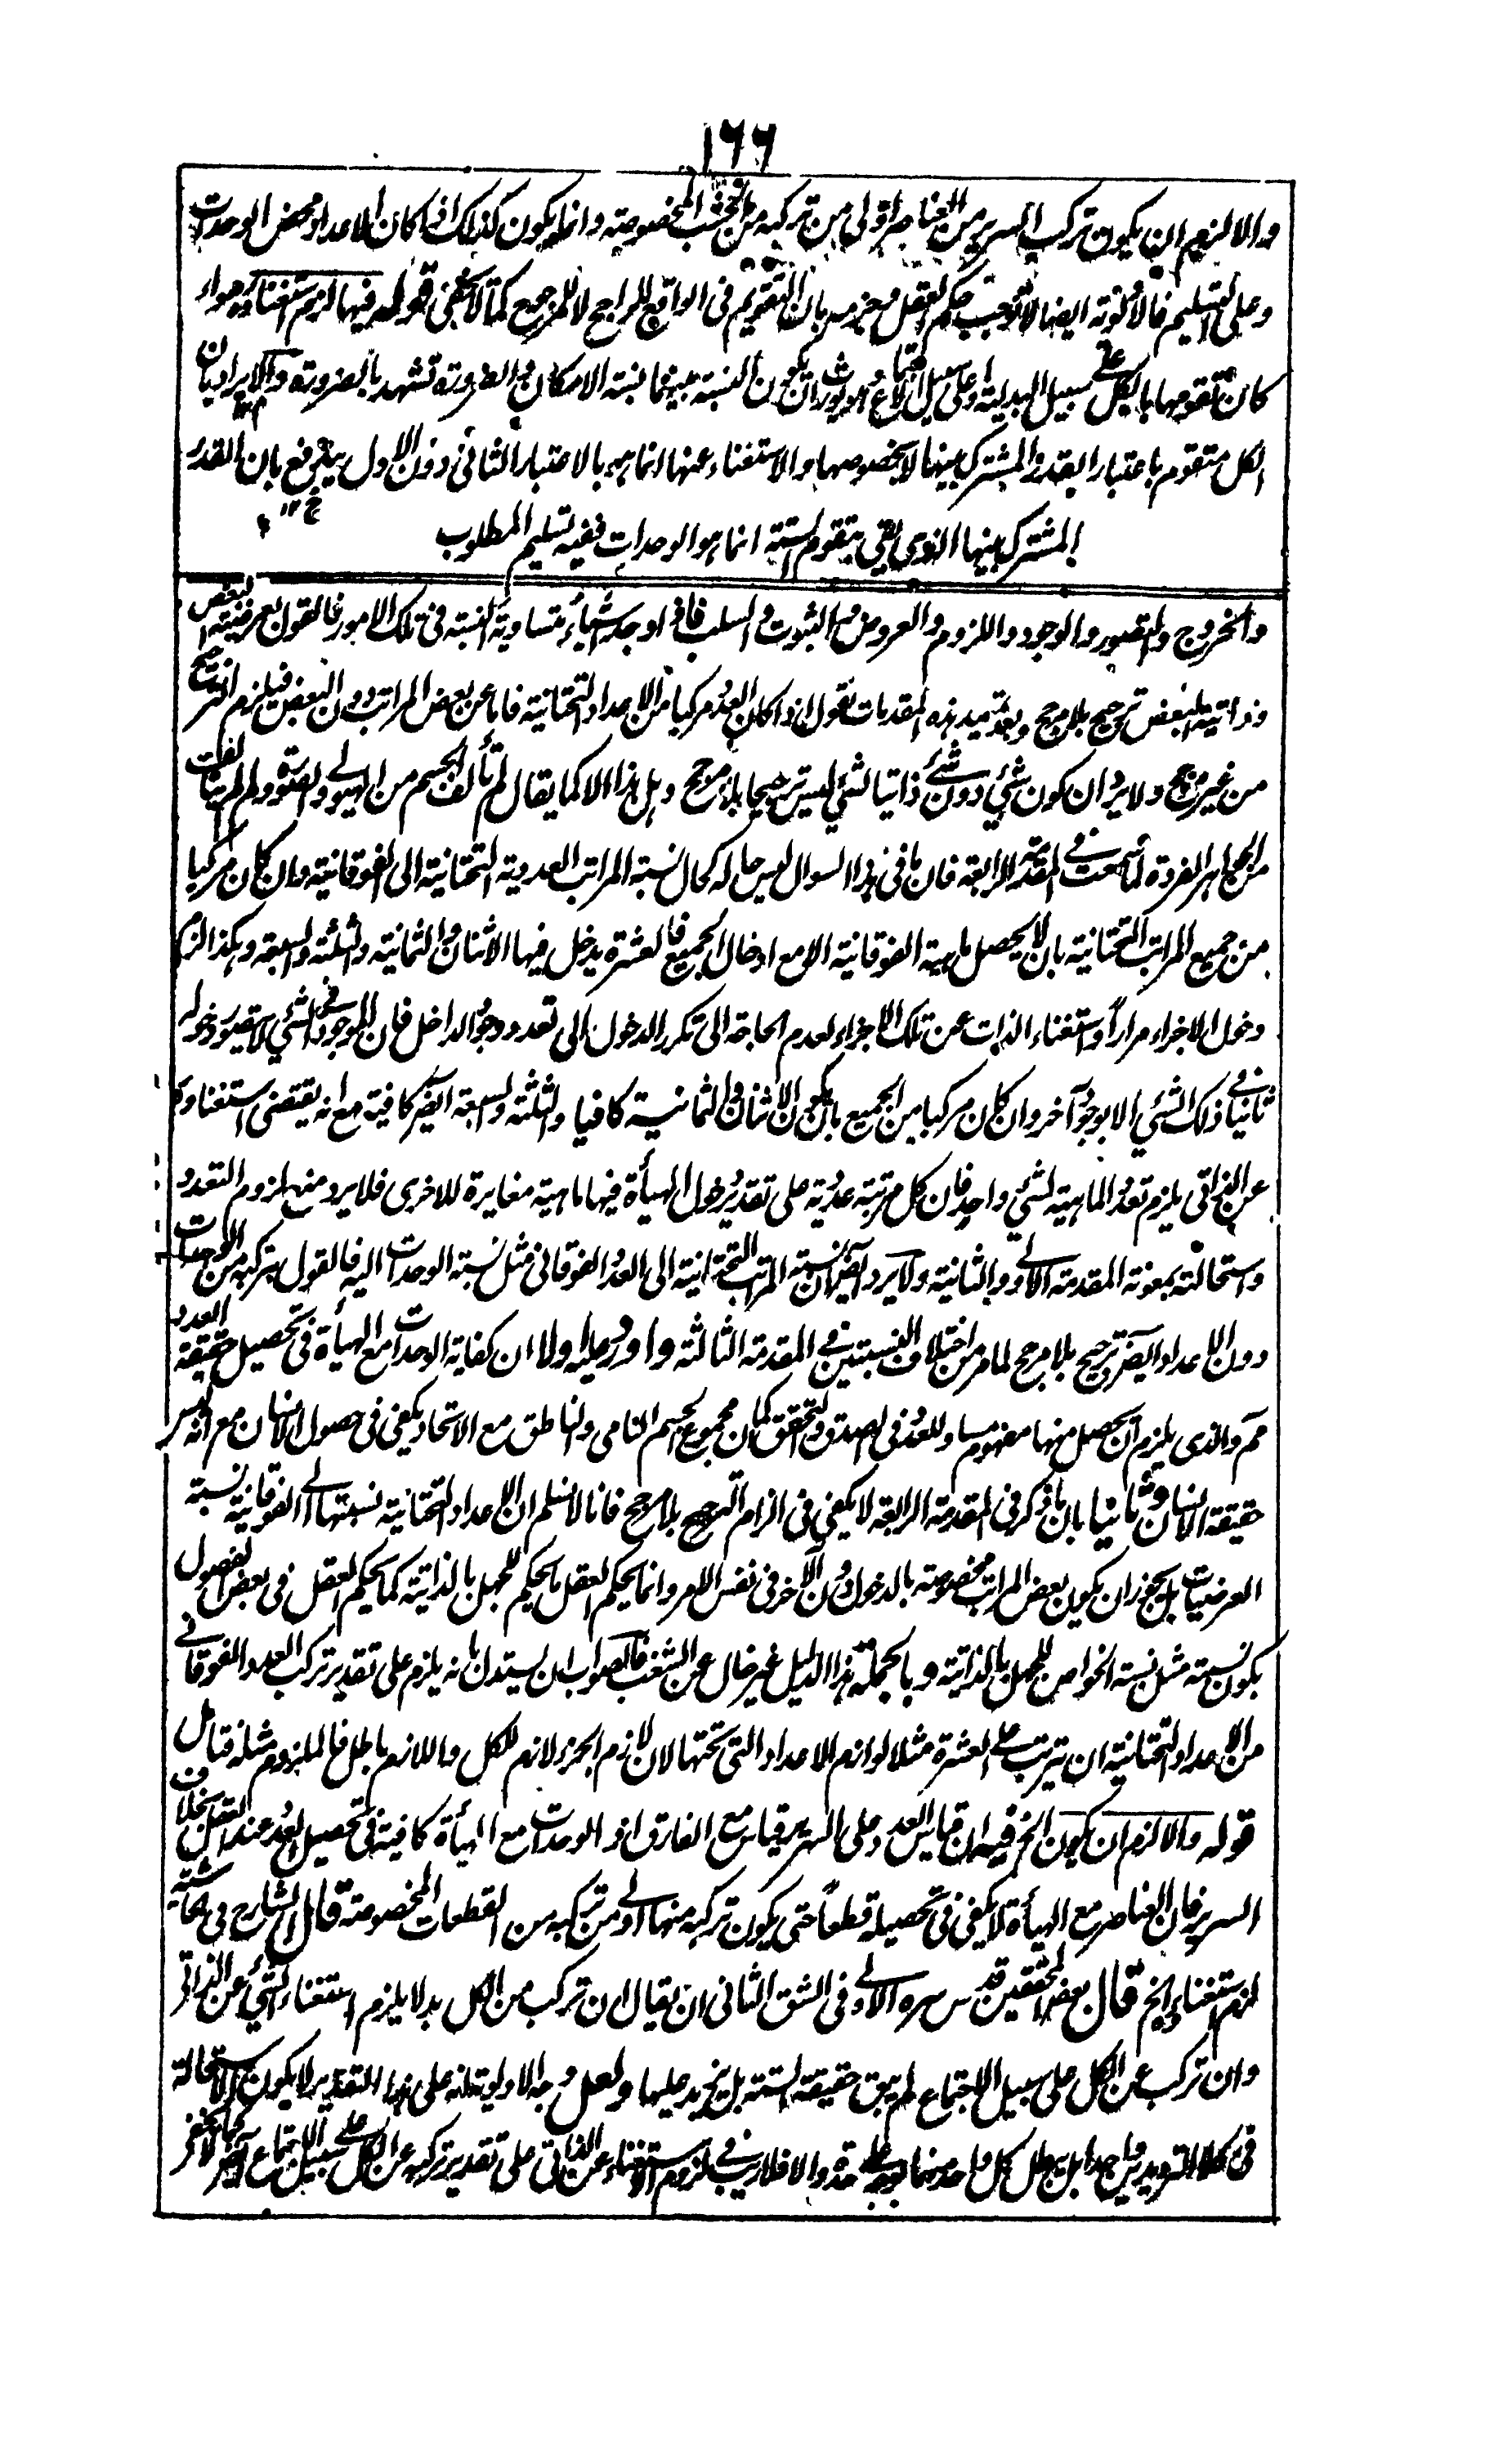 ١٦٦
والا لزم ان يكون تركب السرير من العناصر اولى من تركبه من الخشب المخصوصة وانما يكون كذلك اذا كان الاعداد محض الوحدات
وعلى التسليم فالاولوية ايضا لا توجب حكم العقل وجزمه بان التقويم فى الواقع للراجح لا للمرجوح كما لا يخفى قوله فيها لزم استغناؤه سواء
كان تقومها بالكل على سبيل البدلية او على سبيل الاجتماع يكون النسبة بينهما نسبة الامكان والضرورة تشهد بالضرورة والايراد بان
الكل متقوم باعتبار القدر المشترك بينها لا بخصوصها والاستغناء عنها انما هو بالاعتبار الثانى دون الاول يندفع بان القدر
المشترك بينها الذى يتقوم الستة انما هو الوحدات ففيه تسليم المطلوب
والخروج والتصور والوجود واللزوم والعروض والثبوت والسلب فاذا وجد اشياء متساوية النسبة فى تلك الامور فالقول بعرضية البعض
وذاتية البعض ترجيح بلا مرجح وبعد تمهيد هذه المقدمات نقول اذا كان العدد مركبا من الاعداد التحتانية فاما عن بعض المراتب دون البعض فيلزم الترجيح
من غير مرجح ولا يرد ان كون شئ دون شئ ذاتيا لشئ ليس ترجيحا بلا مرجح وهل هذا الا كما يقال لم تألف الجسم من الهيولى والصورة ولم لم يتألف
من الجواهر الفردة لما سمعت فى المقدمة الرابعة فان ما فى هذا السوال ليس حاله كحال نسبة المراتب العددية التحتانية الى الفوقانية وان كان مركبا
من جميع المراتب التحتانية بان لا يحصل ماهية الفوقانية الا مع ادخال الجميع فالعشرة يدخل فيها الاثنان والثمانية والثلثة والسبعة وهكذا لزم
دخول الاجزاء مرارا واستغناء الذات عن تلك الاجزاء لعدم الحاجة الى تكرر الدخول الى تعدد وجود الداخل فان الموجود فى الشئ لا يتصور دخوله
ثانيا فى ذلك الشئ الا بوجود آخر وان كان مركبا من الجميع بان يكون الاثنان والثمانية كافيا والثلثة والسبعة ايضا كافية مع انه يقتضى استغناؤه
عن الذاتى يلزم تعدد الماهية لشئ واحد فان كل مرتبة عددية على تقدير دخول الهيأة فيها ماهية مغايرة للاخرى فلا يرد منع لزوم التعدد
واستحالته بمعونة المقدمة الاولى والثانية ولا يرد ايضا ان نسبة المراتب التحتانية الى العدد الفوقانى مثل نسبة الوحدات اليه فالقول بتركبه من الوحدات
دون الاعداد ايضا ترجيح بلا مرجح لما مر من اختلاف النسبتين فى المقدمة الثالثة واورد عليه اولا ان كفاية الوحدات مع الهيأة فى تحصيل حقيقة العدد
مم والذى يلزم ان يحصل منها مفهوم مساو للعدد فى الصدق والتحقق كما ان مجموع الجسم النامى والناطق مع الاتحاد يكفى فى حصول الانسان مع انه ليس
حقيقة الانسان وثانيا بان ما ذكر فى المقدمة الرابعة لا يكفى فى الزام الترجيح بلا مرجح فانا لا نسلم ان الاعداد التحتانية نسبتها الى الفوقانية نسبة
العرضيات بل يجوز ان يكون بعض المراتب مخصوصة بالدخول دون الآخر فى نفس الامر وانما يحكم العقل ما يحكم للجهل بالذاتية كما يحكم العقل فى بعض الفصول
بكون نسبته مثل نسبة الخواص للجهل بالذاتية وبالجملة هذا الدليل غير خال عن الشغب فالصواب ان يستدل بانه يلزم على تقدير تركب العدد الفوقانى
من الاعداد التحتانية ان يترتب على العشرة مثلا لوازم الاعداد التى تحتها لان لازم الجزء لازم للكل واللازم باطل فالملزوم مثله فتامل
قوله والا لزم ان يكون الخ فيه ان قياس العدد على السرير قياس مع الفارق اذ الوحدات مع الهيأة كافية فى تحصيل العدد عند العقل بخلاف
السرير فان العناصر مع الهيأة لا يكفى فى تحصيله قطعا حتى يكون تركبه منها اولى من تركبه من القطعات المخصوصة قال الشارح فى الحاشية
لزم استغناؤه الخ قال بعض المحققين قدس سره الاولى فى الشق الثانى ان يقال ان تركب من الكل بدلا يلزم استغناء الشئ عن الذاتى
وان تركب عن الكل على سبيل الاجتماع لم يبق حقيقة الستة بل يزيد عليها ولعل وجه الاولوية انه على هذا التقدير لا يكون الاستحالة
فى كلا الترديدين واحدا بل يبطل كل واحد منهما بوجه على حدة والا فلا ريب فى لزوم استغناء عن الذاتى على تقدير تركبه عن الكل على سبيل الاجتماع ايضا كما لا يخفى